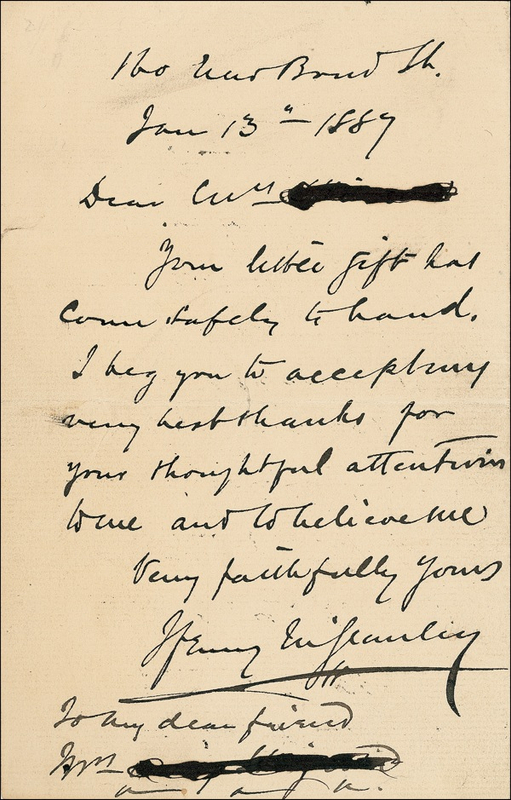 160 New Bond St.
Jan 13" 1887
Dear Mrs
Your little gift has
come safely to hand.
I beg you to accept my
very best thanks for
your thoughtful attention
to me and to believe me
Very faithfully Yours
Henry M Stanley
To my dear friend
Mrs